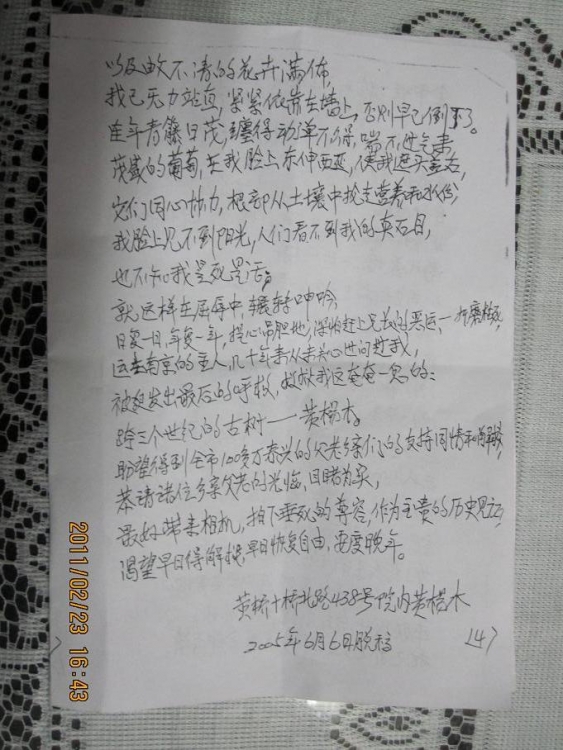 以及数不清的花卉满佈,
我已无力站直,紧紧依靠在墙上,否则早已倒下了。
连年青籐日茂,缠得动弹不得,喘不过气来,
茂盛的葡萄,在我脸上东伸西延,使我遮头盖
它们同心协力,根部从土壤中抢走营养和水份,
我脸上见不到阳光,人们看不到我的真面目,
也不知我是死是活;
就这样在屈辱中,辗转呻吟,
日复一日,年复一年,提心吊胆地,深怕赶上兄长的恶运、
远在南京的主人,几十年来从未关心过问过我,
被迫发出最后的呼救,救救我这奄奄一息的:
跨三个世纪的古树——黄杨木。
盼望得到全市100多万泰兴的父老乡亲们的支持同情和
恭请诸位乡亲父老的光临、目睹为实,
最好带来相机,拍下垂死的尊容,作为宝贵的历史见证,
渴望早日得解救,早日恢复自由,安度晚年。
黄桥十桥北路438号院内黄杨木
2005年6月6日脱稿
147
2011/02/23 16:43